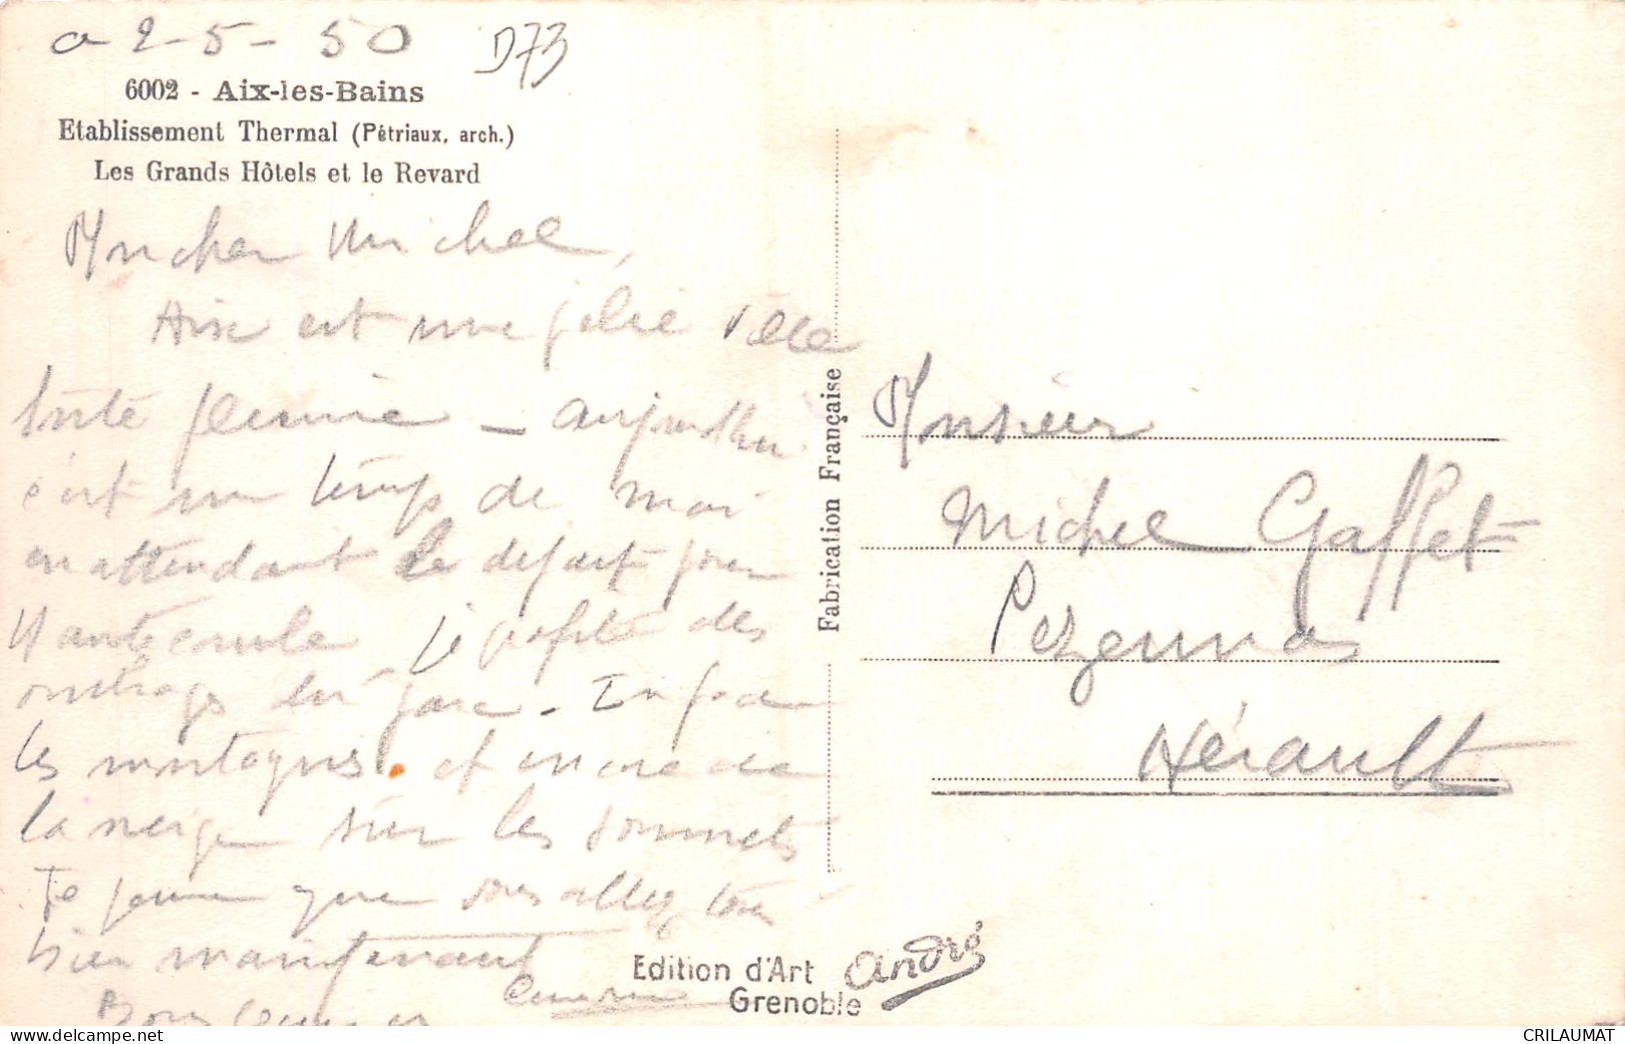 a 2-5-50
D73
6002 - Aix-les-Bains
Etablissement Thermal (Pétriaux, arch.)
Les Grands Hôtels et le Revard
Mon cher Michel,
Aix est une jolie ville
très fleurie - aujourdhui
c'est un temps de mai
en attendant le départ pour
Hautecombe je profite des
ombrages du parc. En face
les montagnes. et encore de
la neige sur les sommets
Je pense que vous allez tous
bien maintenant
Bons baisers
Fabrication Française
Monsieur
Michel Gaffet
Pezenas
Hérault
Edition d'Art André
Grenoble
CRILAUMAT